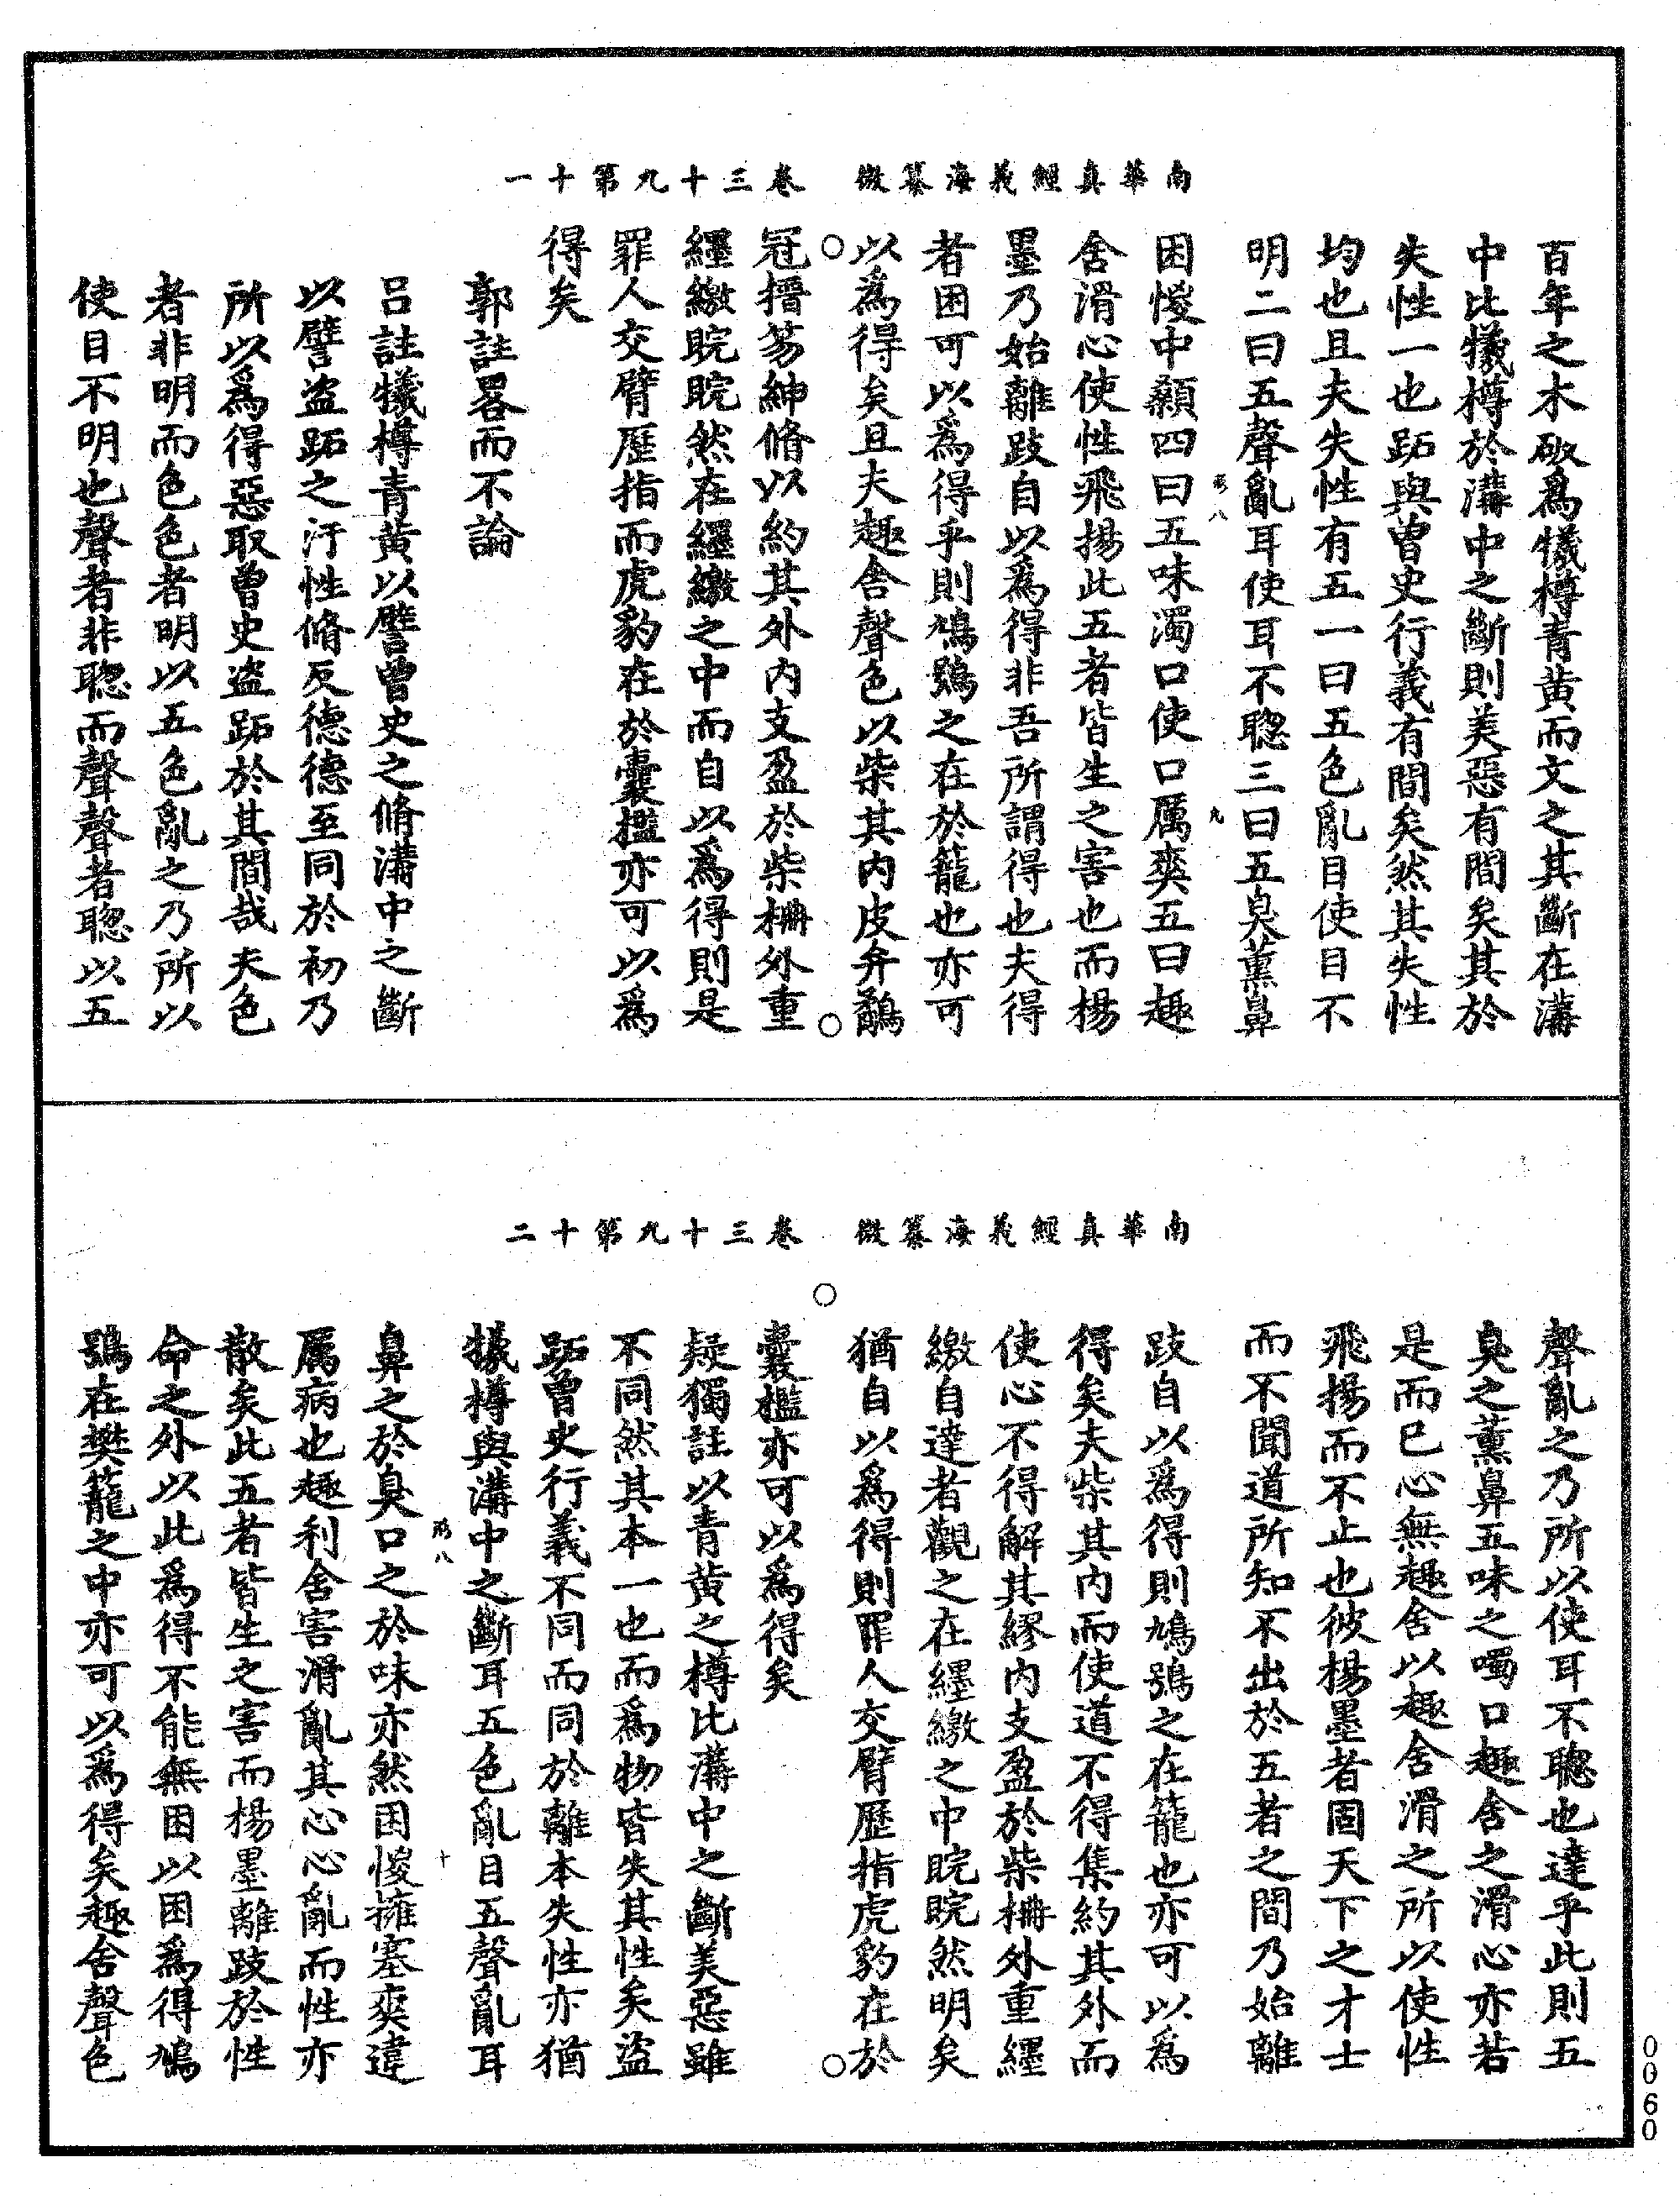 南華真經義海纂微　卷三十九第十一
百年之木破爲犧樽青黃而文之其斷在溝
中比犧樽於溝中之斷則美惡有間矣其於
失性一也跖與曾史行義有間矣然其失性
均也且夫失性有五一曰五色亂目使目不
明二曰五聲亂耳使耳不聰三曰五臭薰鼻
困惾中顙四曰五味濁口使口厲爽五曰趣
舍滑心使性飛揚此五者皆生之害也而楊
墨乃始離跂自以爲得非吾所謂得也夫得
者困可以爲得乎則鳩鴞之在於籠也亦可
以爲得矣且夫趣舍聲色以柴其內皮弁鷸
冠搢笏紳脩以約其外內支盈於柴柵外重
纆繳睆睆然在纆繳之中而自以爲得則是
罪人交臂歷指而虎豹在於囊檻亦可以爲
得矣
郭註畧而不論
呂註犧樽青黃以譬曾史之脩溝中之斷
以譬盜跖之汙性脩反德德至同於初乃
所以爲得惡取曾史盜跖於其間哉夫色
者非明而色色者明以五色亂之乃所以
使目不明也聲者非聰而聲聲者聰以五
南華真經義海纂微　卷三十九第十二
聲亂之乃所以使耳不聰也達乎此則五
臭之薰鼻五味之噣口趣舍之滑心亦若
是而已心無趣舍以趣舍滑之所以使性
飛揚而不止也彼楊墨者固天下之才士
而不聞道所知不出於五者之間乃始離
跂自以爲得則鳩鴞之在籠也亦可以爲
得矣夫柴其內而使道不得集約其外而
使心不得解其繆內支盈於柴柵外重纆
繳自達者觀之在纆繳之中睆睆然明矣
猶自以爲得則罪人交臂歷指虎豹在於
囊檻亦可以爲得矣
疑獨註以青黃之樽比溝中之斷美惡雖
不同然其本一也而爲物皆失其性矣盜
跖曾史行義不同而同於離本失性亦猶
犧樽與溝中之斷耳五色亂目五聲亂耳
鼻之於臭口之於味亦然困惾擁塞爽違
厲病也趣利舍害滑亂其心心亂而性亦
散矣此五者皆生之害而楊墨離跂於性
命之外以此爲得不能無困以困爲得鳩
鴞在樊籠之中亦可以爲得矣趣舍聲色
0060